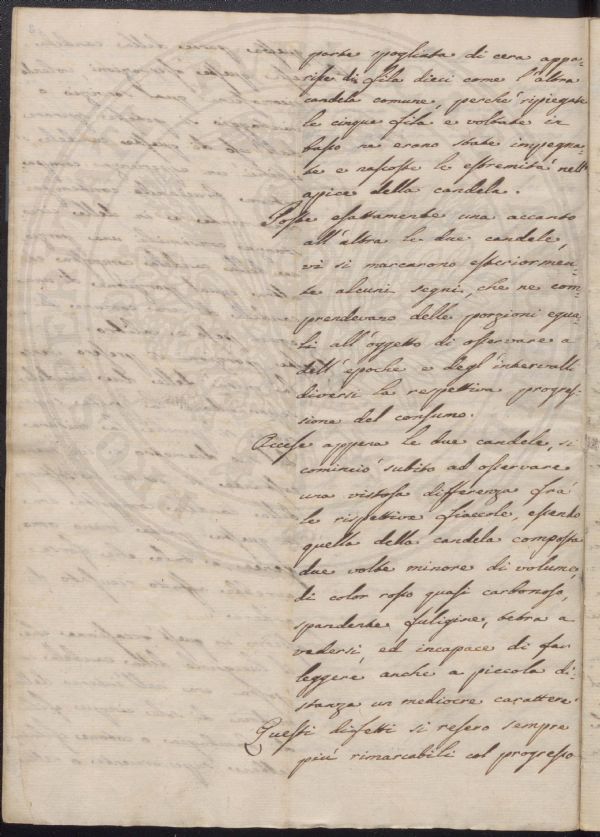 parte spogliata di cera appa-
risse di fila dieci come l'altra
candela comune, perchè ripiegate
le cinque fila e voltate in
basso ne erano state impegna-
te e nascoste le estremità nell'
apice della candela.
Poste esattamente una accanto
all'altra le due candele,
vi si marcarono esteriormen-
te alcuni segni, che ne com-
prendevano delle porzioni egua-
li all'oggetto di osservare a
dell'epoche e degl'intervalli
diversi la respettiva progres-
sione del consumo.
Accese appena le due candele, si
cominciò subito ad osservare
una vistosa differenza frà
le rispettive fiaccole, essendo
quella della candela composta
due volte minore di volume,
di color rosso quasi carbonoso,
spandente fuligine, tetra a
vedersi, ed incapace di far
leggere anche a piccola di-
stanza un mediocre carattere.
Questi difetti si resero sempre
più rimarcabili col progresso